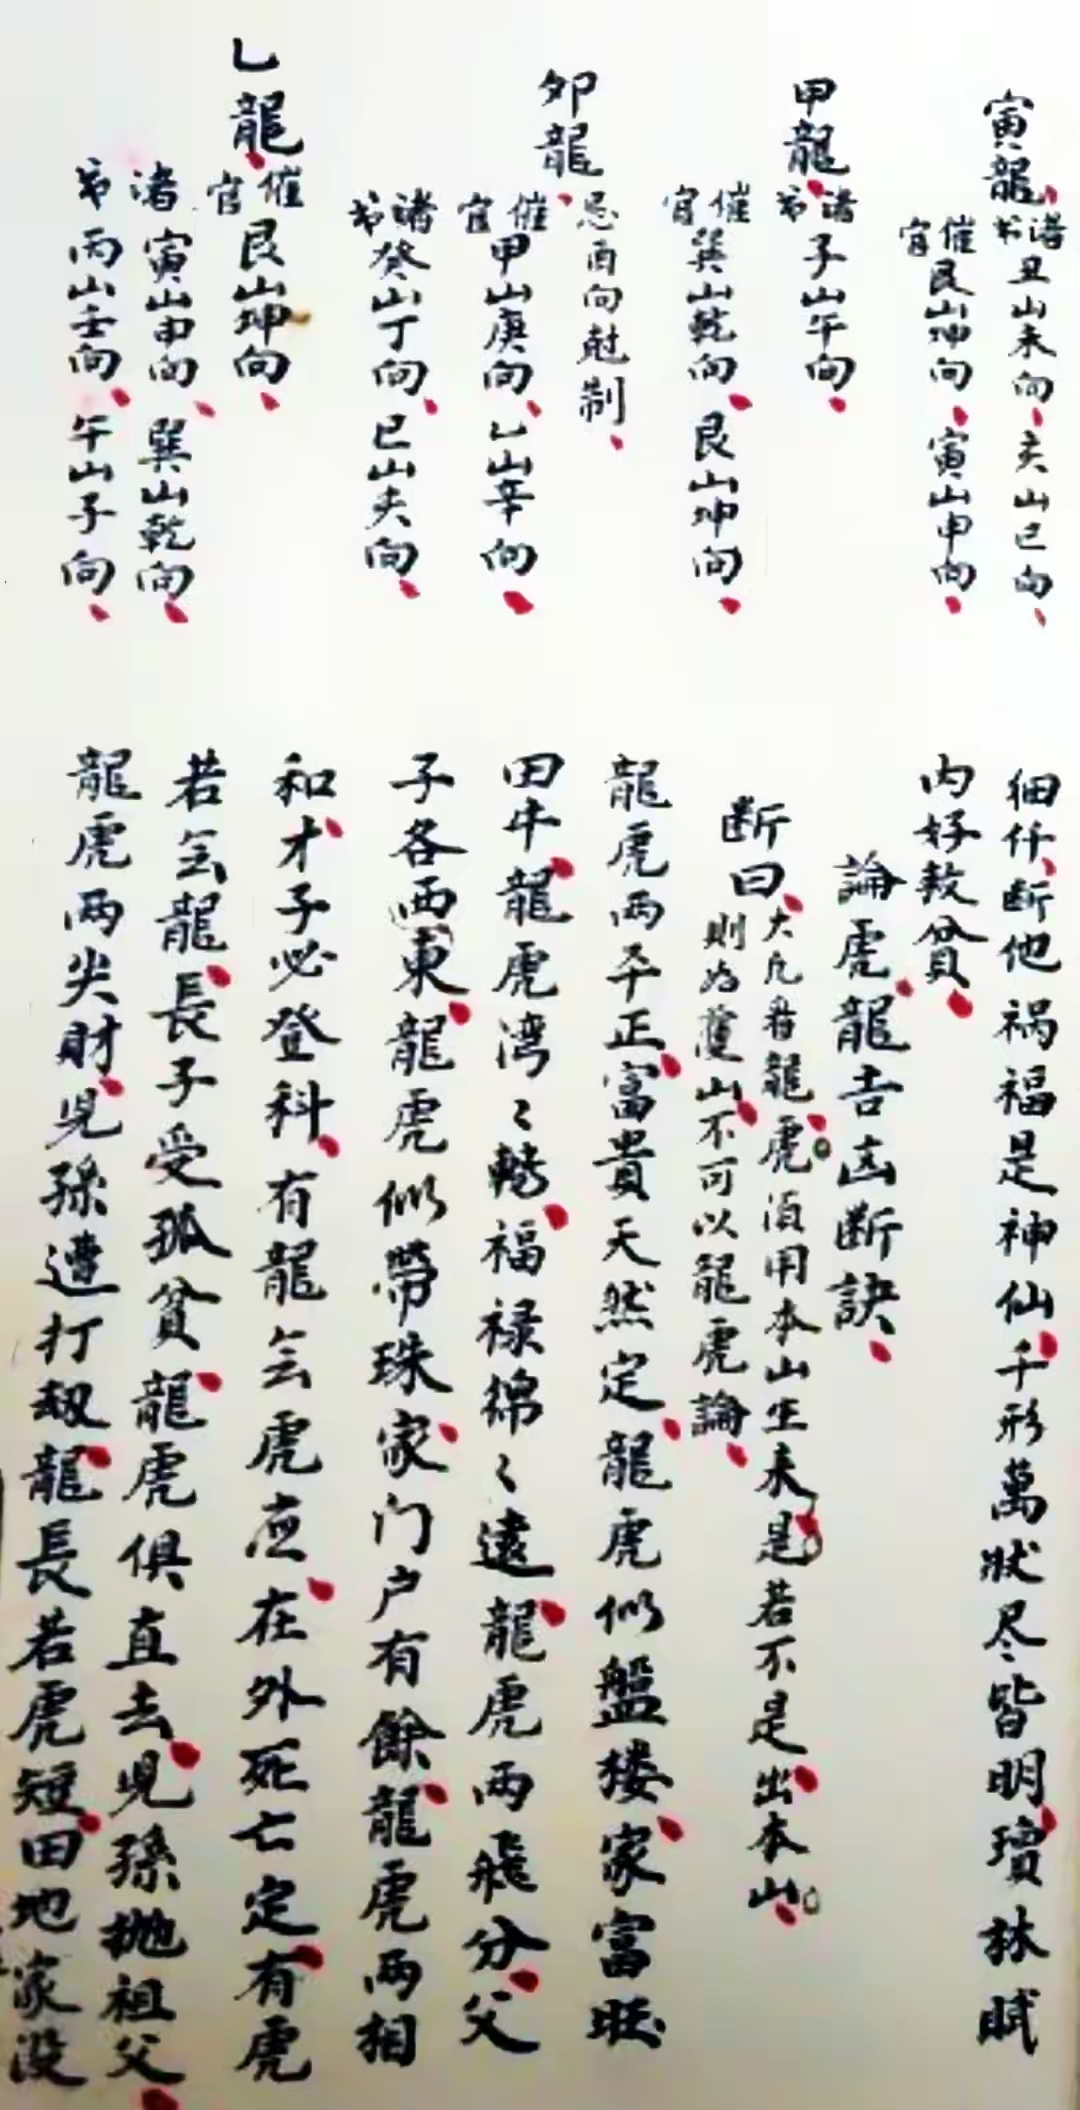 寅龍
渚书丑山未向亥山巳向
催官艮山坤向寅山申向
甲龍
渚书子山午向
催官巽山乾向艮山坤向
卯龍
忌酉向尅制
催官甲山庚向乙山辛向
渚书癸山丁向巳山亥向
乙龍
催官艮山坤向
渚寅山申向巽山乾向
书丙山壬向午山子向
细仟断他祸福是神仙千形萬狀尽皆明瓊林賦
内好救貧
論虎龍吉凶断訣
断曰
大凡看龍虎須用本山生来是若不是出本山
則为護山不可以龍虎論
龍虎两平正富貴天然定龍虎似盤楼家富旺
田牛龍虎湾〻轉福禄綿〻遠龍虎两飛分父
子各西東龍虎似帶珠家门户有餘龍虎两相
和才子必登科有龍会虎应在外死亡定有虎
若会龍長子受孤貧龍虎俱直去児孫抛祖父
龍虎两尖財児孫遭打刼龍長若虎短田地家没